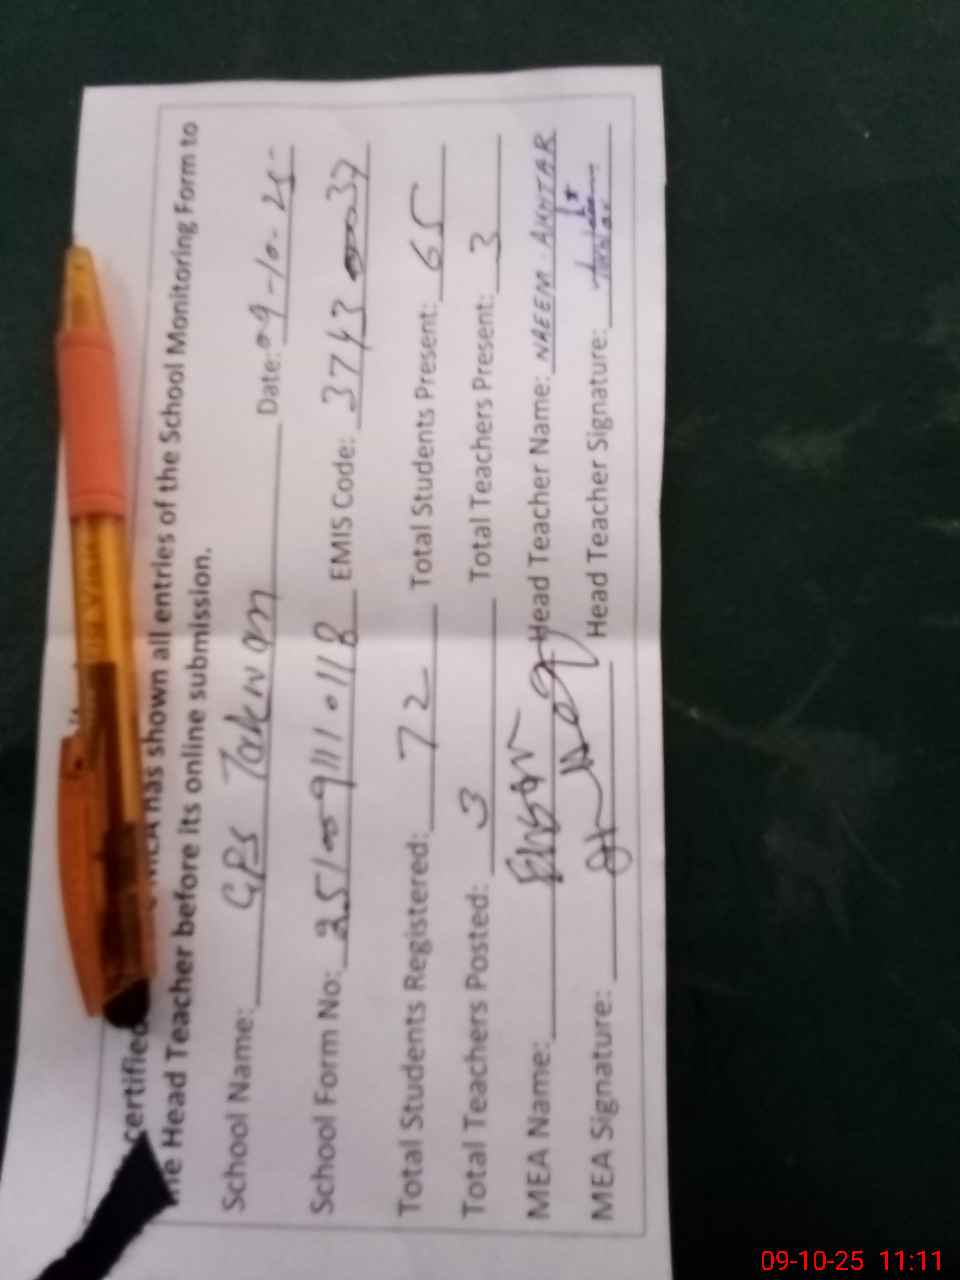 certified MEA has shown all entries of the School Monitoring Form to
the Head Teacher before its online submission.
School Name: GPS Takwan Date: 09-10-25
School Form No: EMIS Code:
Total Students Registered: 72 Total Students Present: 65
Total Teachers Posted: 3 Total Teachers Present: 3
MEA Name: Head Teacher Name: NAEEM AKHTAR
MEA Signature: Head Teacher Signature:
09-10-25 11:11